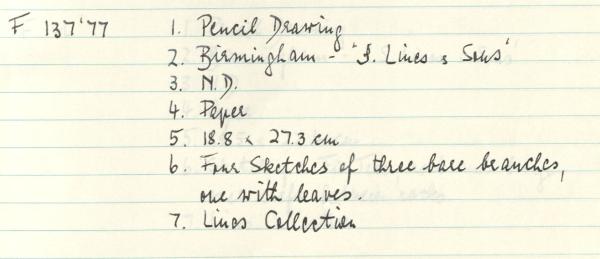 F 137'77 1. Pencil Drawing
2. Birmingham - 'S. Lines & Sons'
3. N.D.
4. Paper
5. 18.8 x 27.3 cm
6. Four Sketches of three bare branches,
one with leaves.
7. Lines Collection